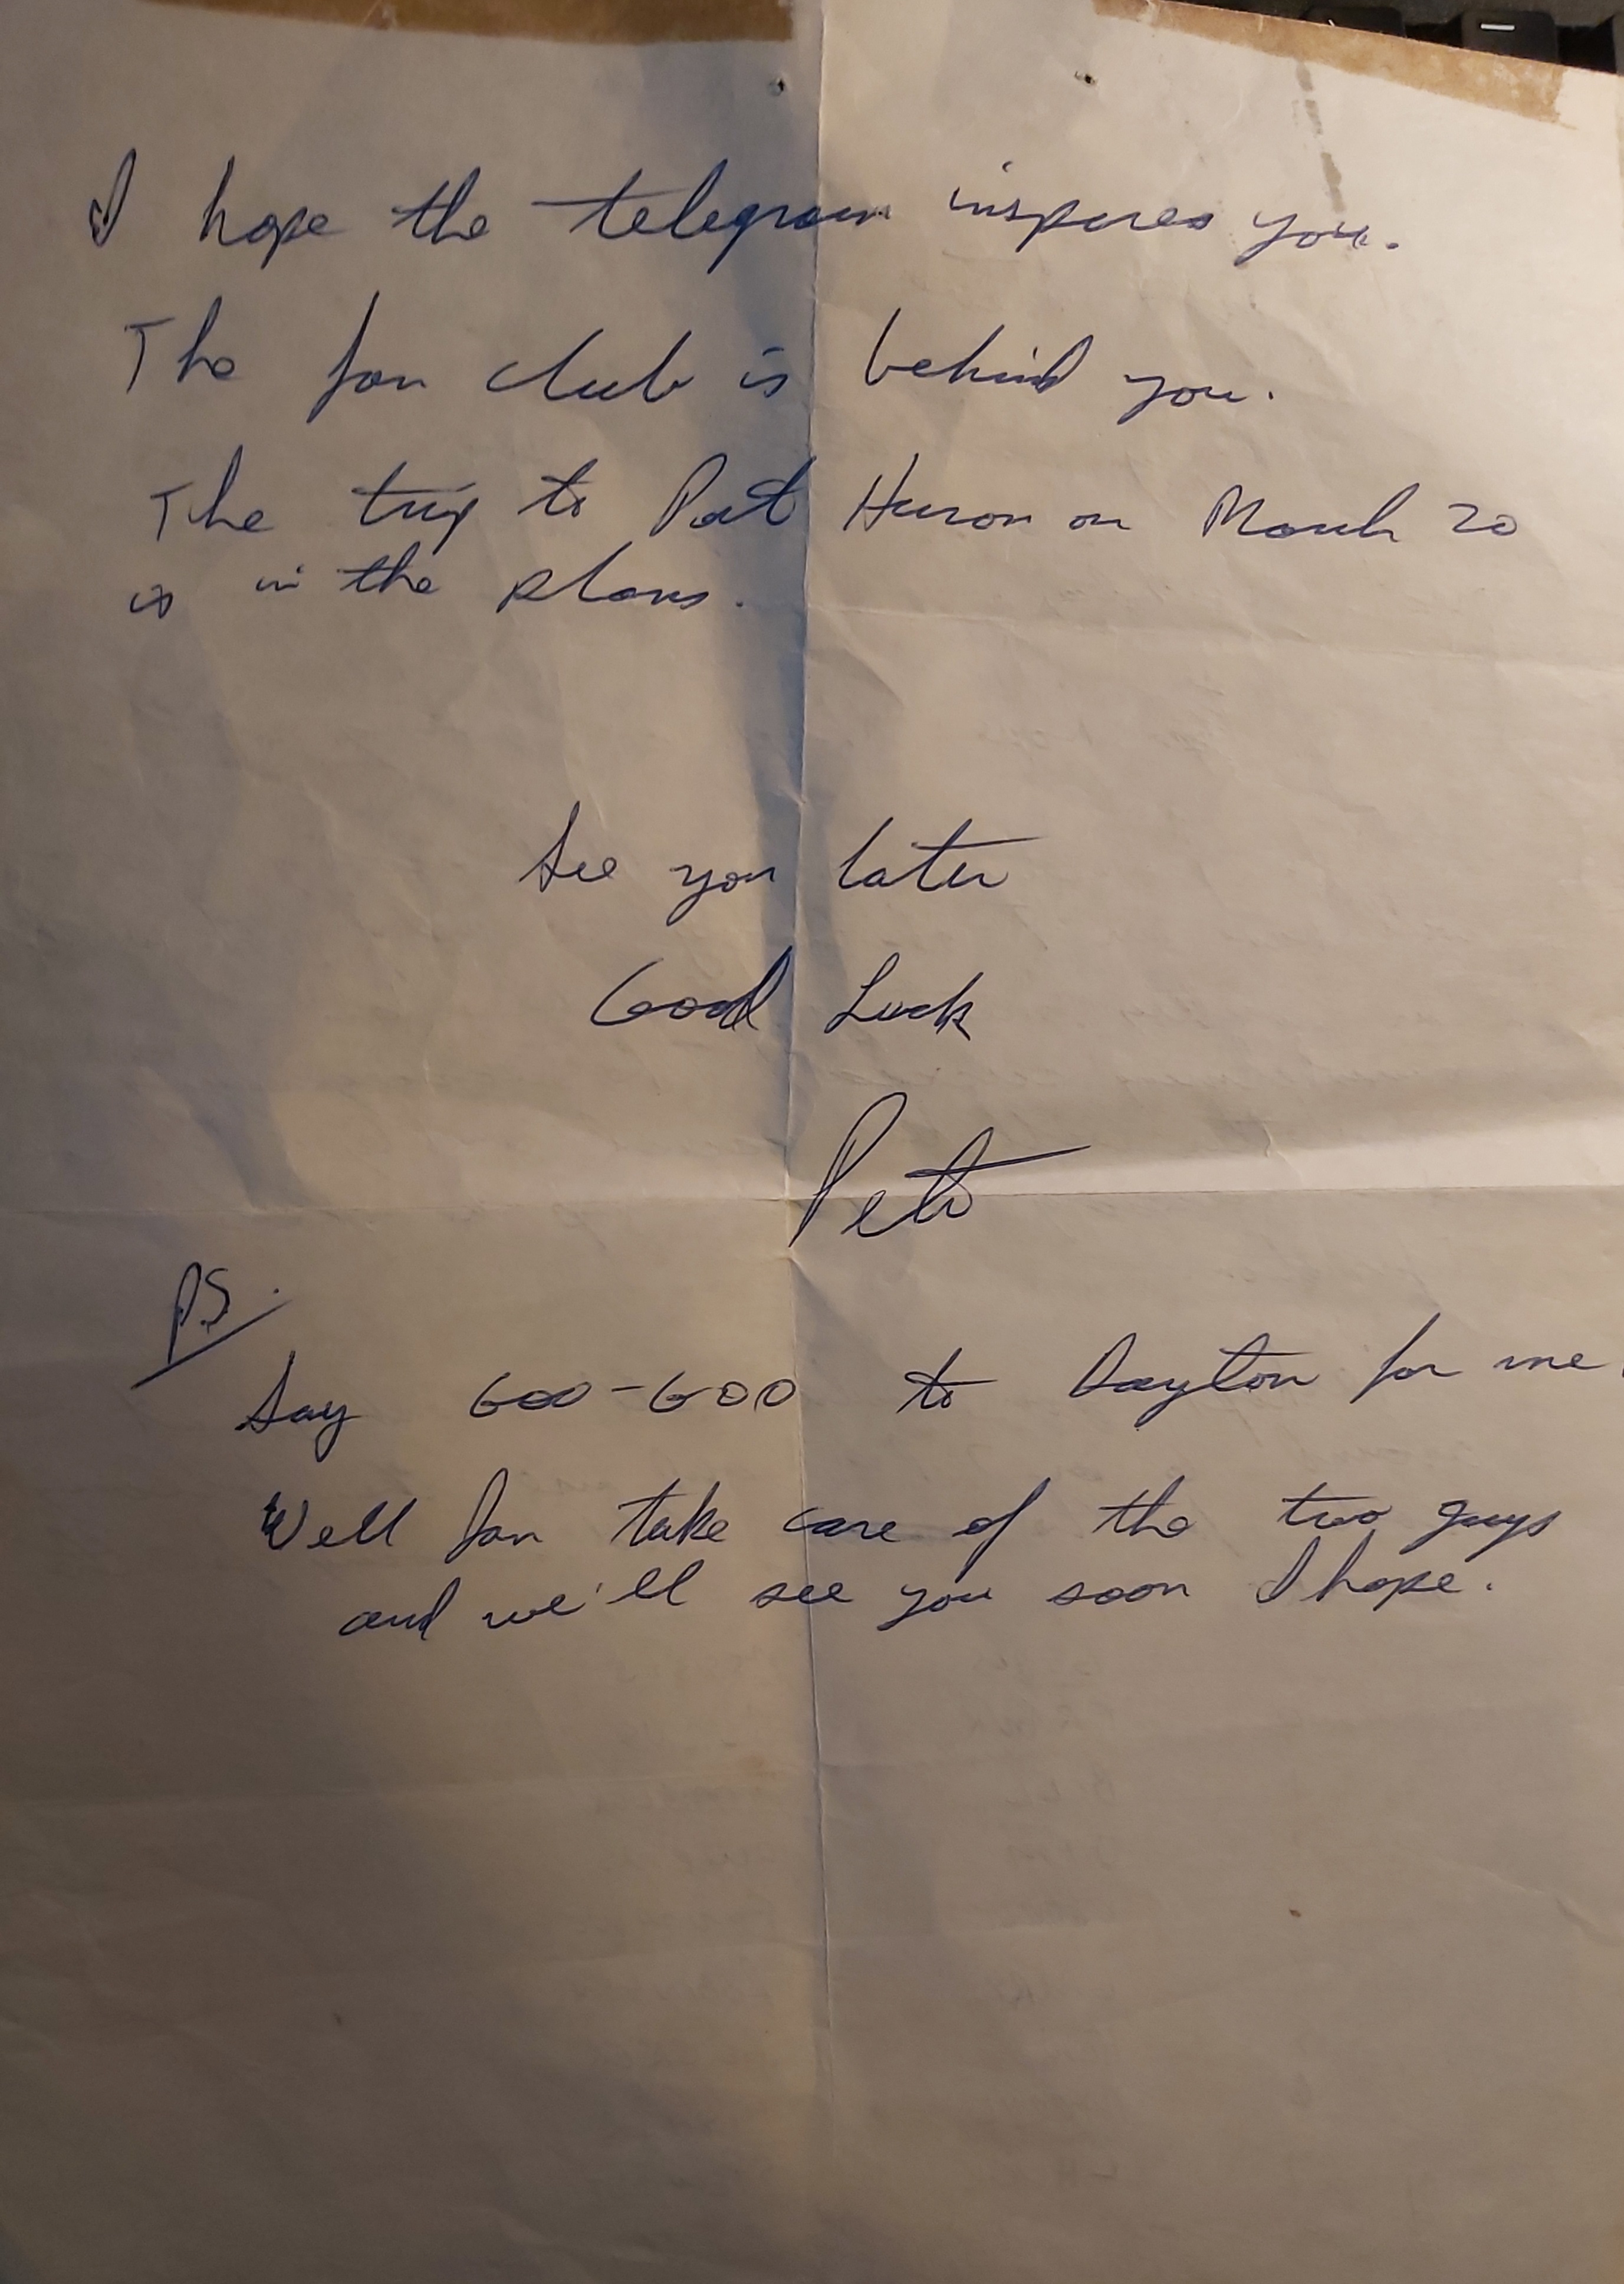 I hope the telegram inspires you.
The fan club is behind you.
The trip to Port Huron on March 20
is in the plans.
See you later
Good Luck
Pete
P.S.
Say Goo-Goo to Dayton for me
Well take care of the two guys
and we'll see you soon I hope.